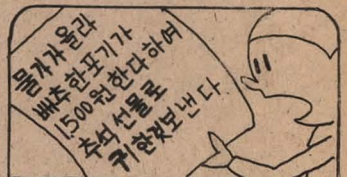 물가가 올라
배추 한포기가
1,500원 한다 하여
추석 선물로
귀한것 보낸다